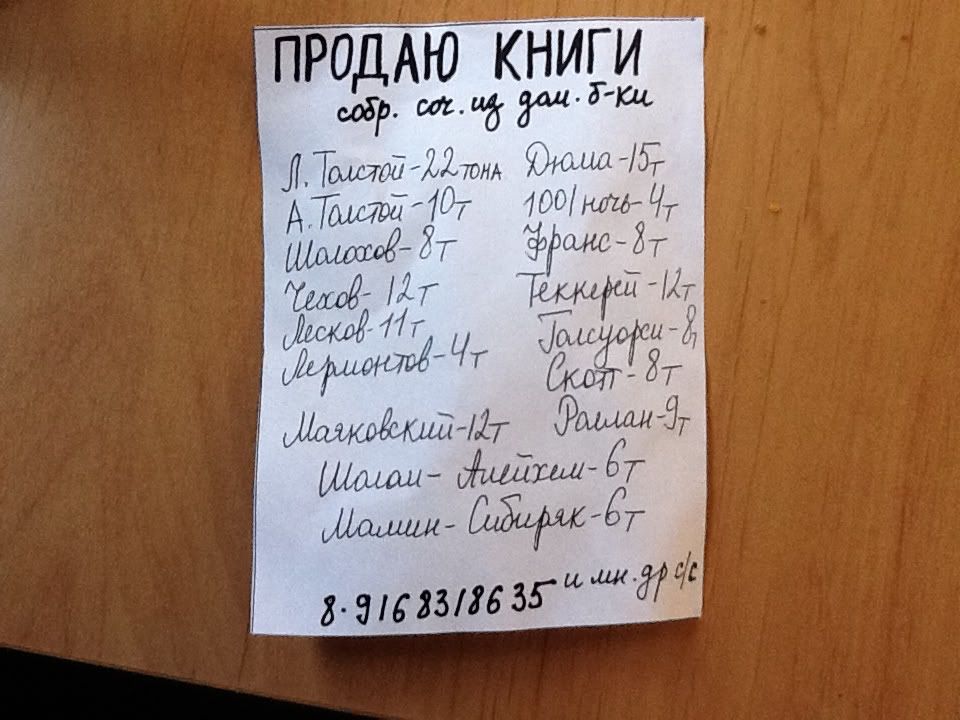 ПРОДАЮ КНИГИ
собр. соч. из дом. б-ки
Л. Толстой - 22 тона
А. Толстой - 10т
Шолохов - 8т
Чехов - 12т
Лесков - 11т
Лермонтов - 4т
Маяковский - 12т
Дюма - 15т
1001 ночь - 4т
Франс - 8т
Теккерей - 12т
Голсуорси - 8т
Скотт - 8т
Роллан - 9т
Шолом - Алейхем - 6т
Мамин - Сибиряк - 6т
и мн. др с/с
8-9168318635